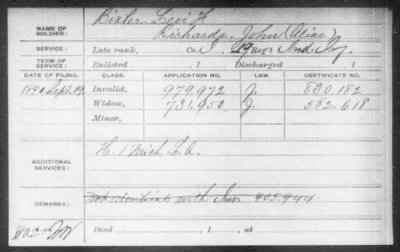 NAME OF SOLDIER: Bixler, Levi H.
Richards, John (Alias)
SERVICE: Late rank, Co. I, 29 Reg't Ind. Inf.
TERM OF SERVICE: Enlisted , 1 Discharged , 1
DATE OF FILING. CLASS. APPLICATION NO. LAW. CERTIFICATE NO.
1890 Sept. 19. Invalid, 979,972 J. 830.182
Widow, 731,950 J. 582.618
Minor,
ADDITIONAL SERVICES: H. 1 Mich L.A.
REMARKS: Not identical with Inv. 405.944
Died , 1 , at